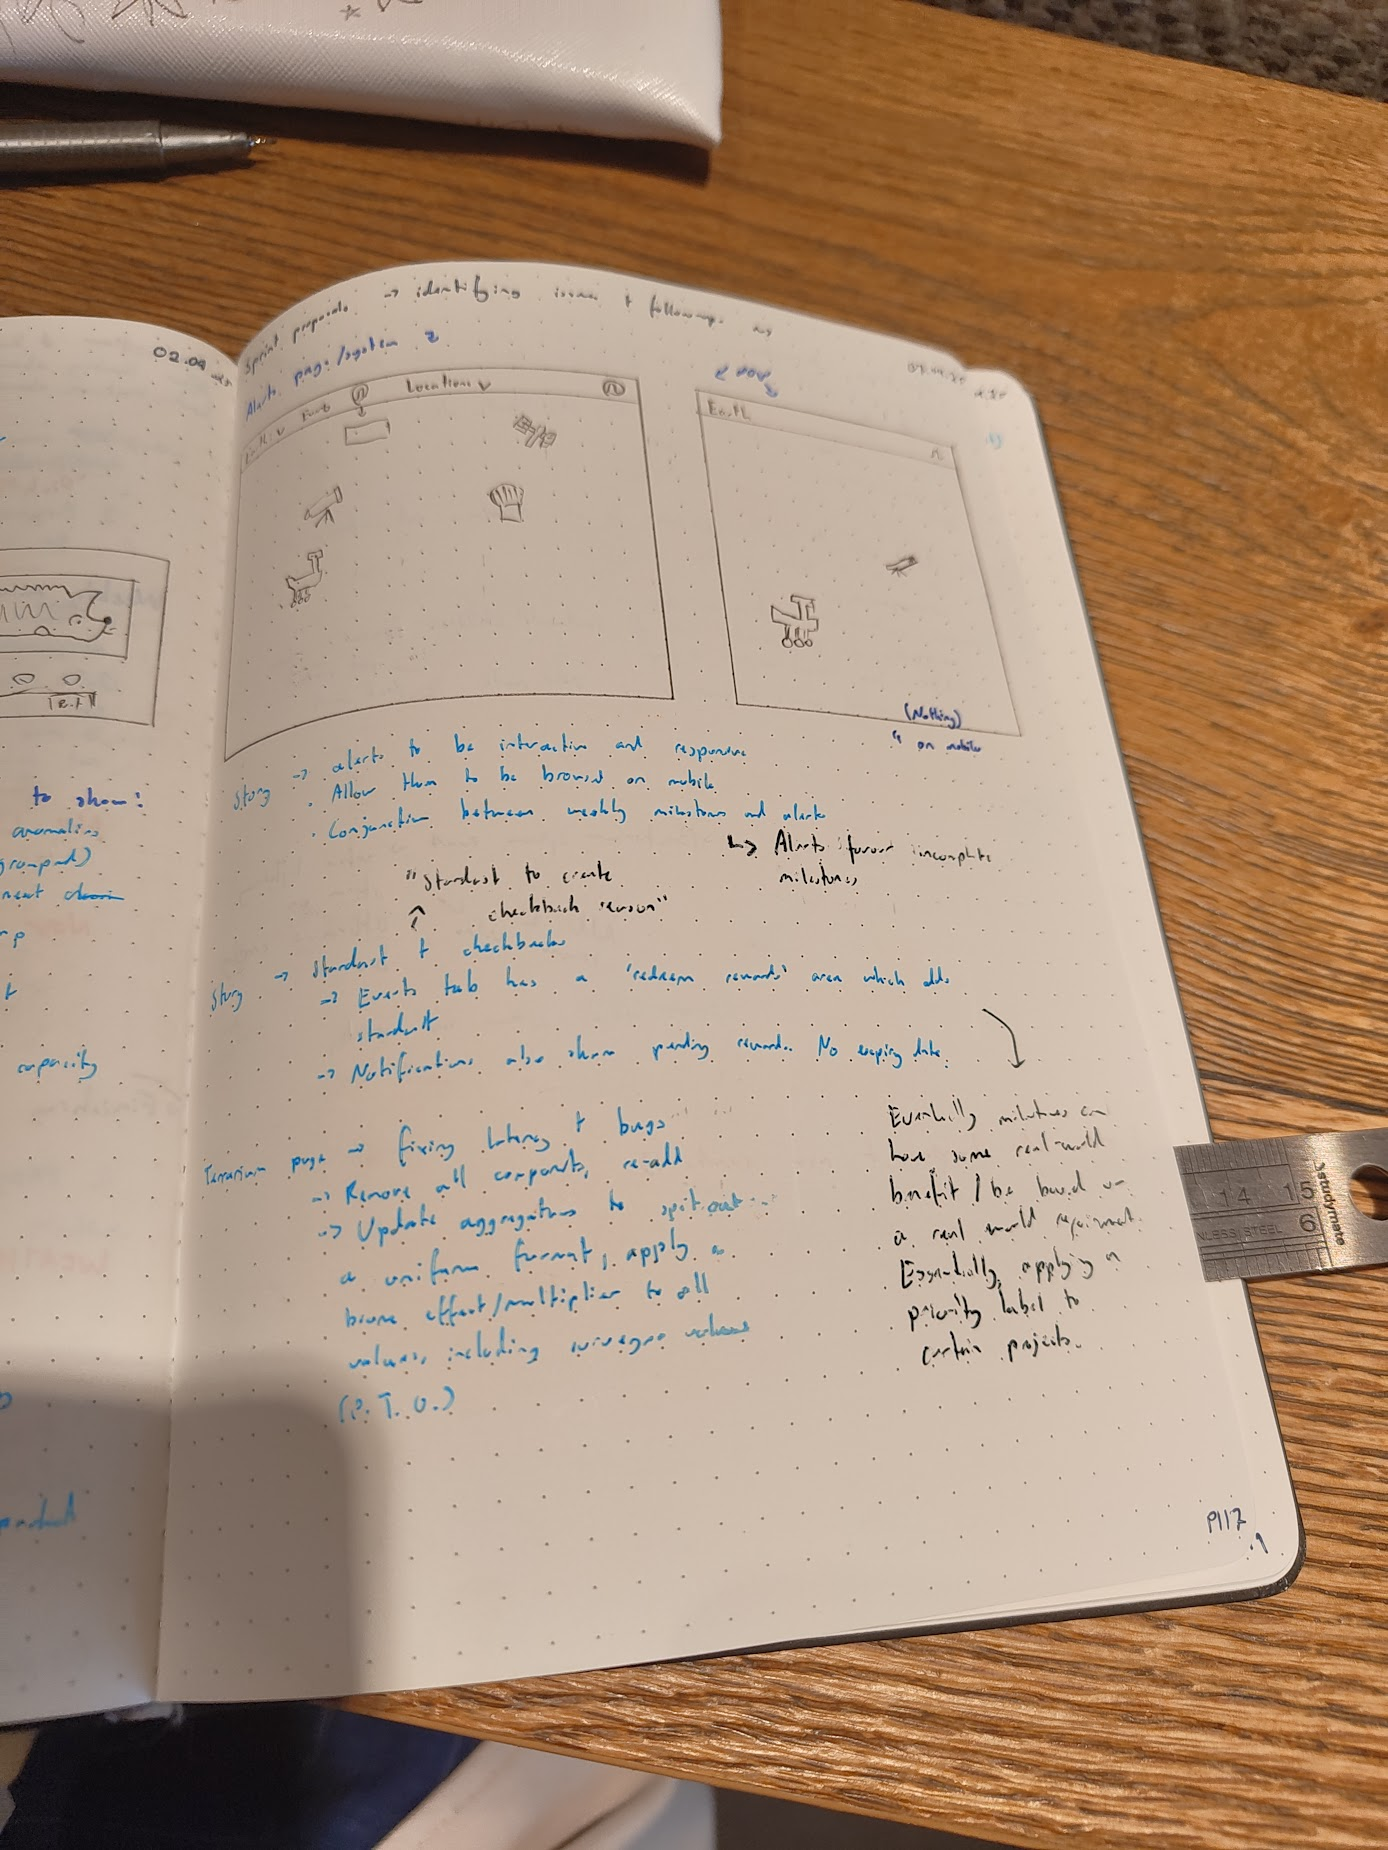 02.04
to show:
anomalies
grouped)
next
rp
t
capacity
Sprint proposals → identifying issues + followup
Alerts page/system
Locations v
Earth
(Nothing)
on mobile
Story → alerts to be interactive and responsive
. Allow them to be browsed on mobile
. Conjunction between weekly milestones and alerts
↳ Alerts incomplete
milestones
"Stardust to create
checkback
Story → Stardust + checkbacks
→ Events tab has a 'redeem rewards' area which adds
stardust
→ Notifications also show pending rewards. No expiry date
Eventually milestones can
have some real-world
benefit / be based on
a real world requirement.
Essentially, applying a
priority label to
certain projects.
Terrarium page → fixing latency + bugs
→ Remove all components, re-add
→ Update aggregations to spit out
a uniform format, apply a
biome effect/multiplier to all
values, including
(P.T.O.)
P117
14 15
6
STEEL
studymate